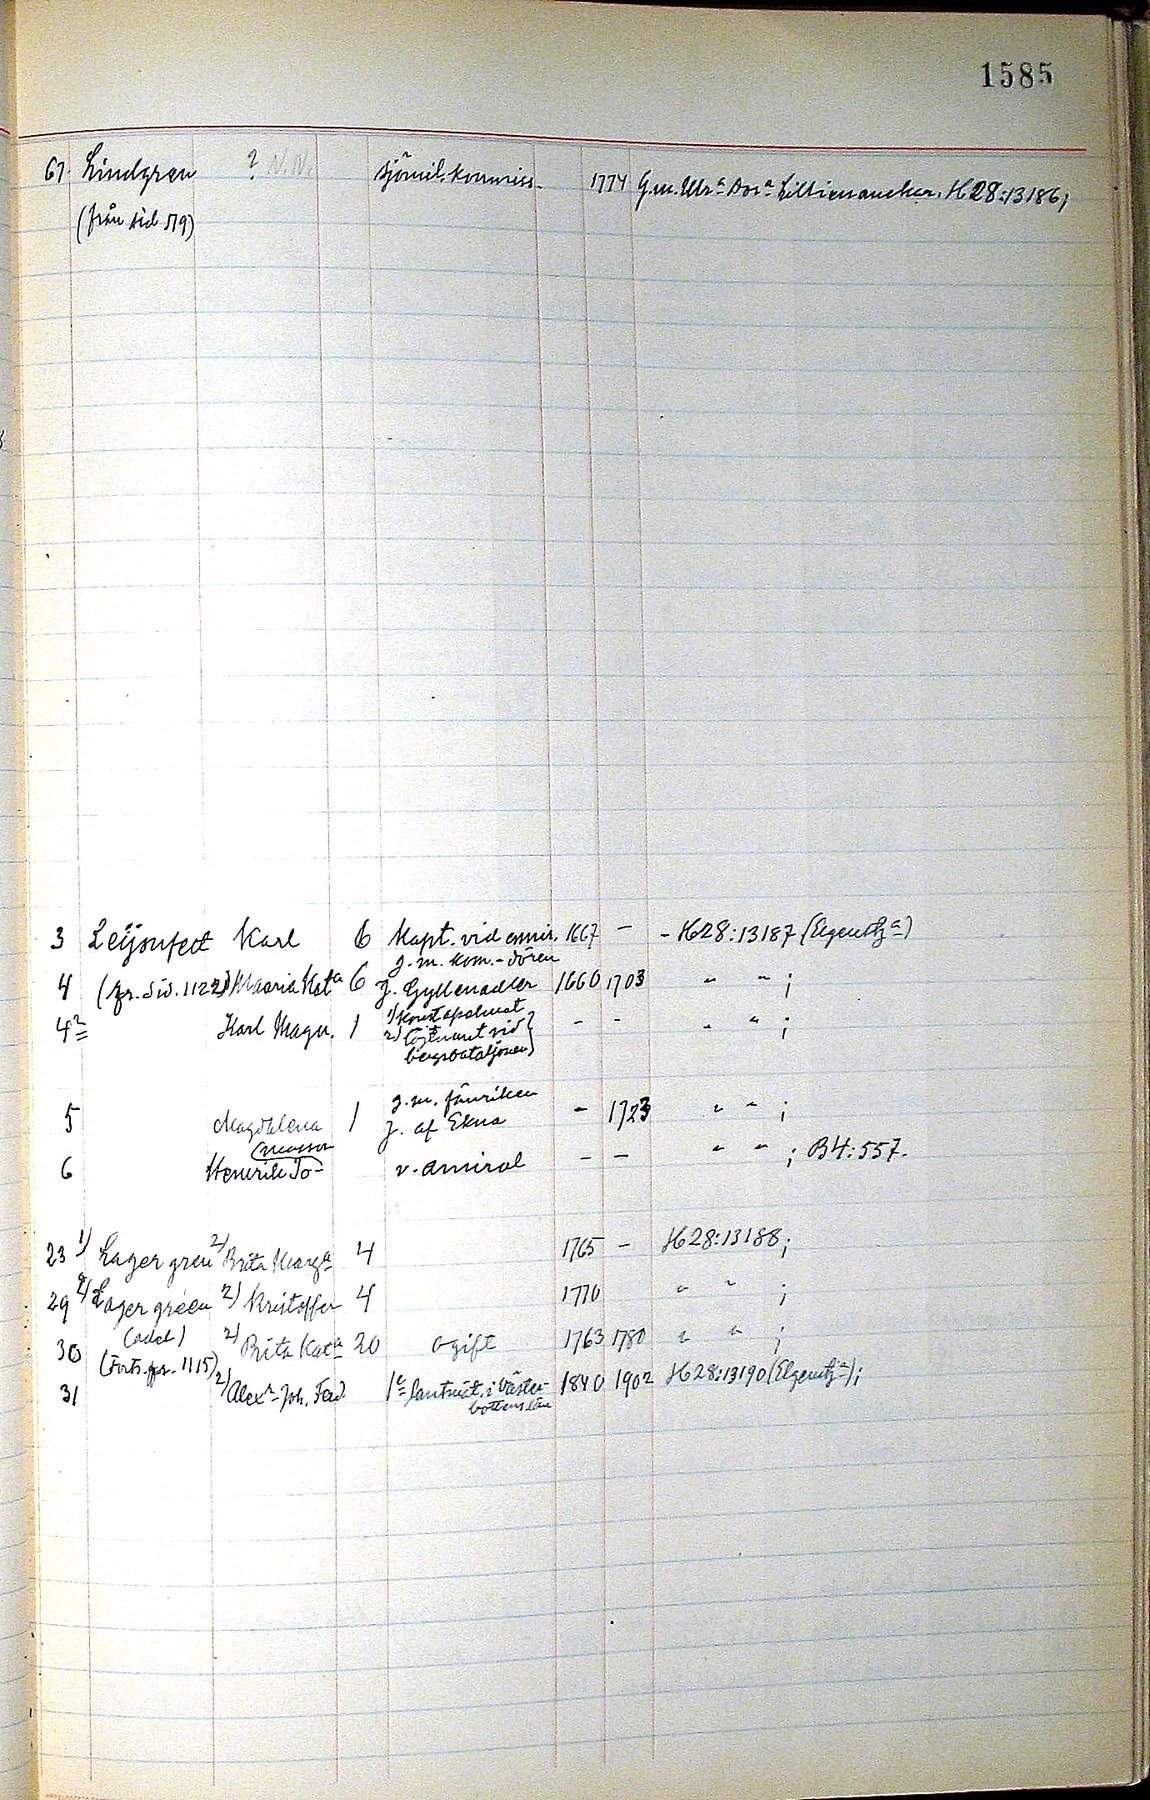 1585
67. Lindgren ? N.N. sjömil. kommiss. 1774 G.m. Ulr:a Dor:a Lillienanckar. H28:13186;
(från sid 519)
3 Leijonfeet Karl 6 Kapt. vid amir. 1667 - - H28:13187 (Elgenstj:a)
4 (fr. Sid. 1122) Maaria Kat:a 6 g.m. kom.-dören J. Gyllenadler 1660 1703 " " ;
4 2 Karl Magn. 1 1) Konstapelmat 2) löjtnant vid bergsbataljonen) - - " " ;
5 Magdalena 1 g.m. fänriken J. af Ekna - 1723 " " ;
6 Henrik Jo- (nasson v. amiral - - " " ; B4:557.
23 1) Lagergren 2) Brita Marg:a 4 1765 - H28:13188;
29 2) Lagergréen 2) Kristoffer 4 1770 " " ;
30 (adel) 2) Brita Kat:a 20 ogift 1763 1780 " " ;
(Forts. fr. 1115)
31 2) Alex:r Joh. Ferd. 1:e lantmät. i Väster- bottens län 1840 1902 H28:13190 (Elgenstj:a);